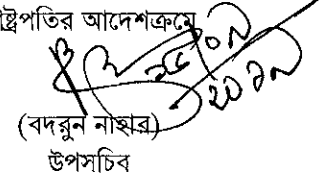 ষ্ট্রপতির আদেশক্রমে
(বদরুন নাহার)
উপসচিব